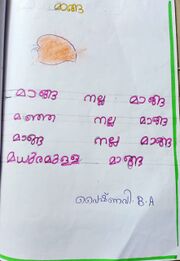 മാങ്ങ
മാങ്ങ നല്ല മാങ്ങ
മഞ്ഞ നല്ല മാങ്ങ
മാങ്ങ നല്ല മാങ്ങ
മധുരമുള്ള മാങ്ങ
വൈഷ്ണവി. B. A